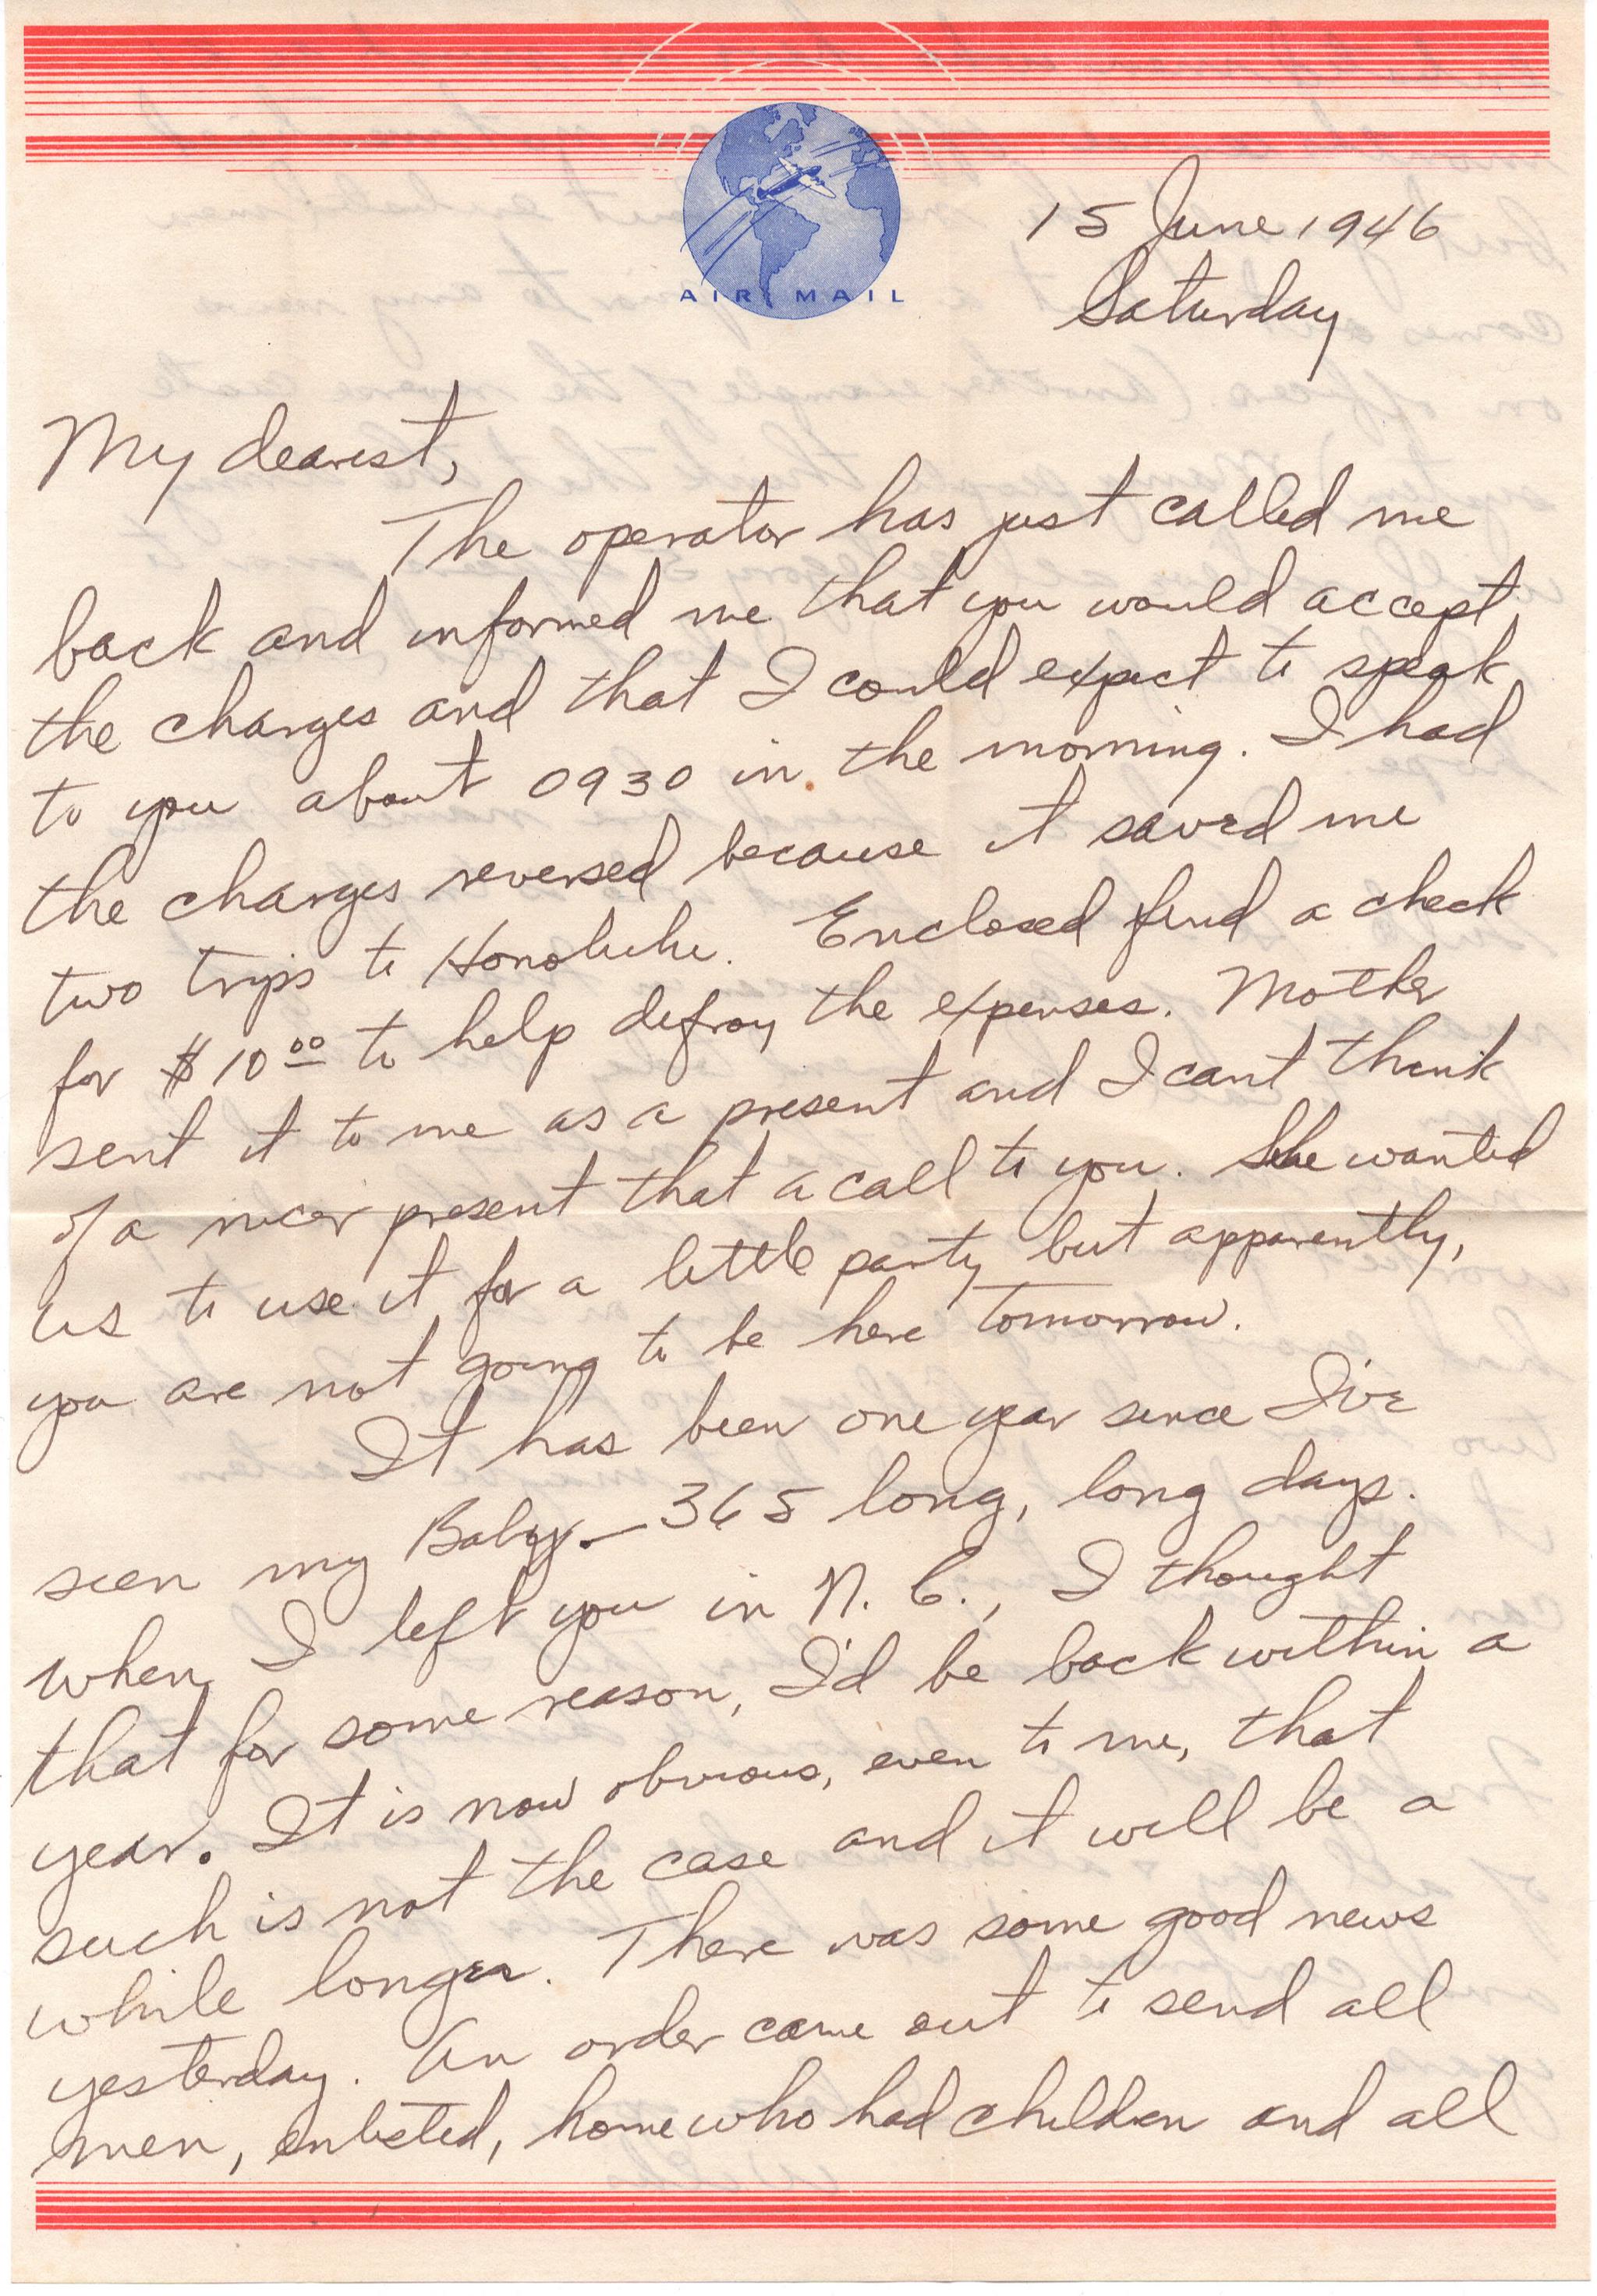 AIR MAIL
15 June 1946
Saturday
My dearest,
The operator has just called me
back and informed me that you would accept
the charges and that I could expect to speak
to you about 0930 in the morning. I had
the charges reversed because it saved me
two trips to Honolulu. Enclosed find a check
for $10 00 to help defray the expenses. Mother
sent it to me as a present and I cant think
of a nicer present that a call to you. She wanted
us to use it for a little party but apparently,
you are not going to be here tomorrow.
It has been one year since I've
seen my Baby. — 365 long, long days.
When I left you in N. C., I thought
that for some reason, I'd be back within a
year. It is now obvious, even to me, that
such is not the case and it will be a
while longer. There was some good news
yesterday. An order came out to send all
men, enlisted, home who had children and all